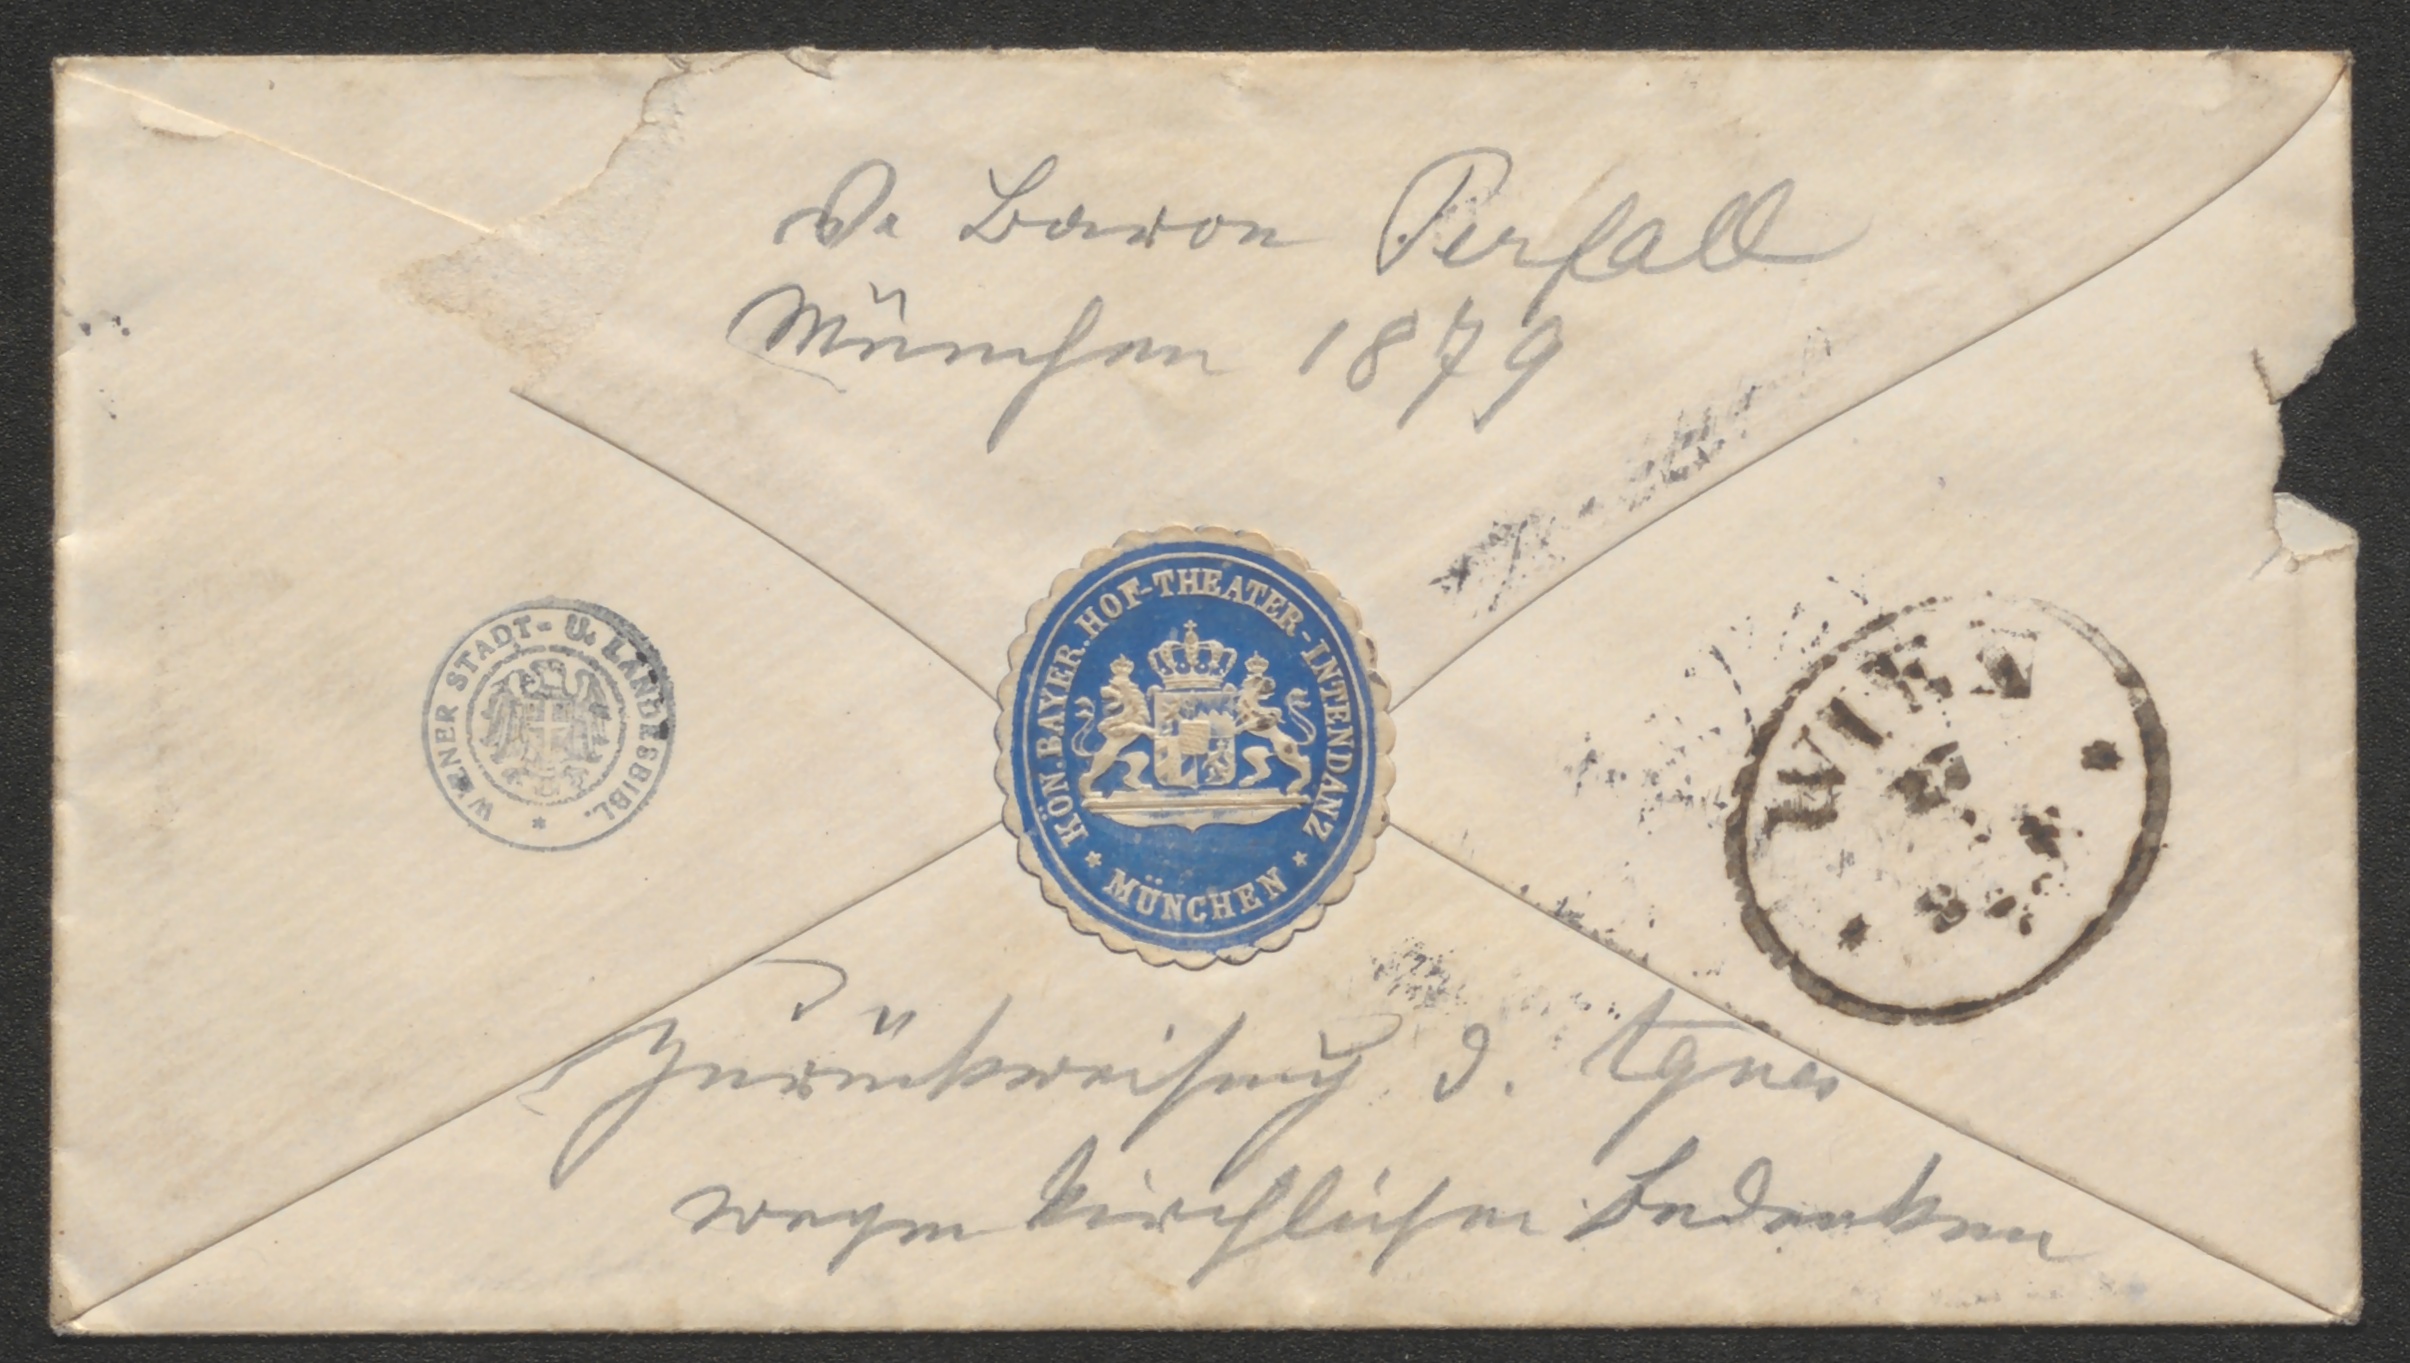 v. Baron Perfall
München 1879
KÖN. BAYER. HOF-THEATER-INTENDANZ
* MÜNCHEN *
WIENER STADT- U. LANDESBIBL.
*
WIEN
Zurückweisung d. Agnes
wegen kirchlichen Bedenken